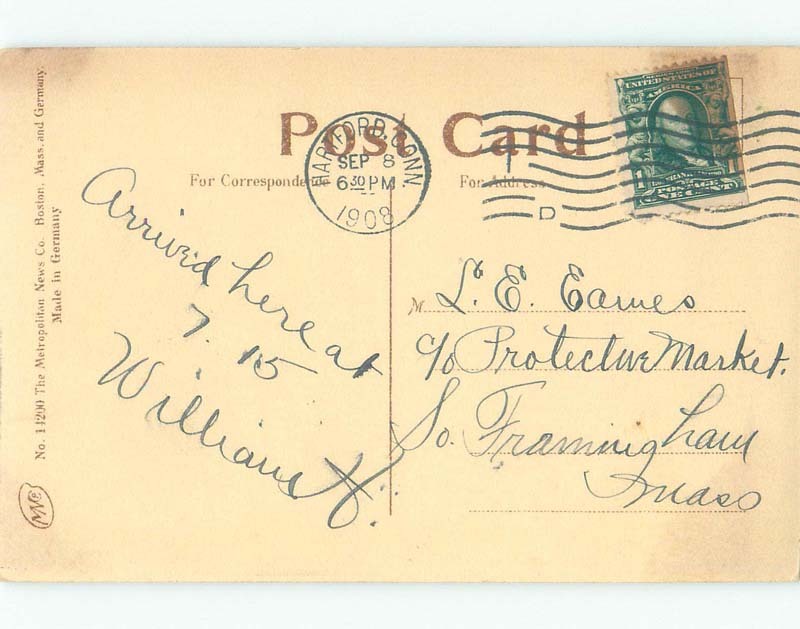 No. 14200 The Metropolitan News Co. Boston, Mass. and Germany.
Made in Germany
Post Card
For Correspondence
For Address
HARTFORD, CONN.
SEP 8
6 30 PM
1908
D
UNITED STATES OF
AMERICA
1 1
FRANKLIN
POSTAGE
ONE CENT
Arrived here at
7. 15
William H.
M
L. E. Eames
c/o Protective Market.
So. Framingham
Mass